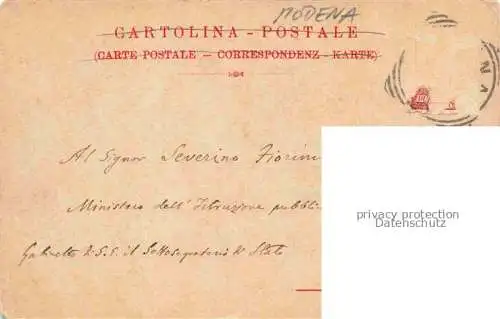 MODENA
CARTOLINA - POSTALE
(CARTE POSTALE – CORRESPONDENZ - KARTE)
N A
Al Signor Severino Fiorin
Ministero dell'Istruzione pubbli
Gabinetto di S. E. il Sottosegretario di Stato
privacy protection
Datenschutz